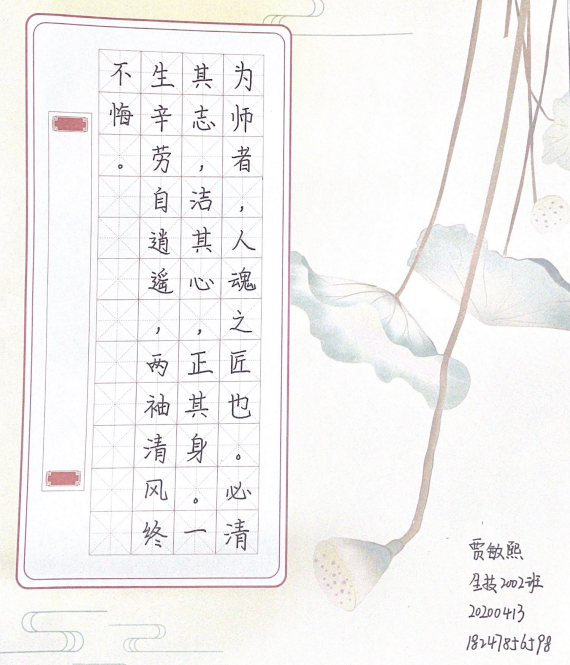 为师者，人魂之匠也。必清
其志，洁其心，正其身。一
生辛劳自逍遥，两袖清风终
不悔。
贾敏熙
生技2002班
20200413
18247856598